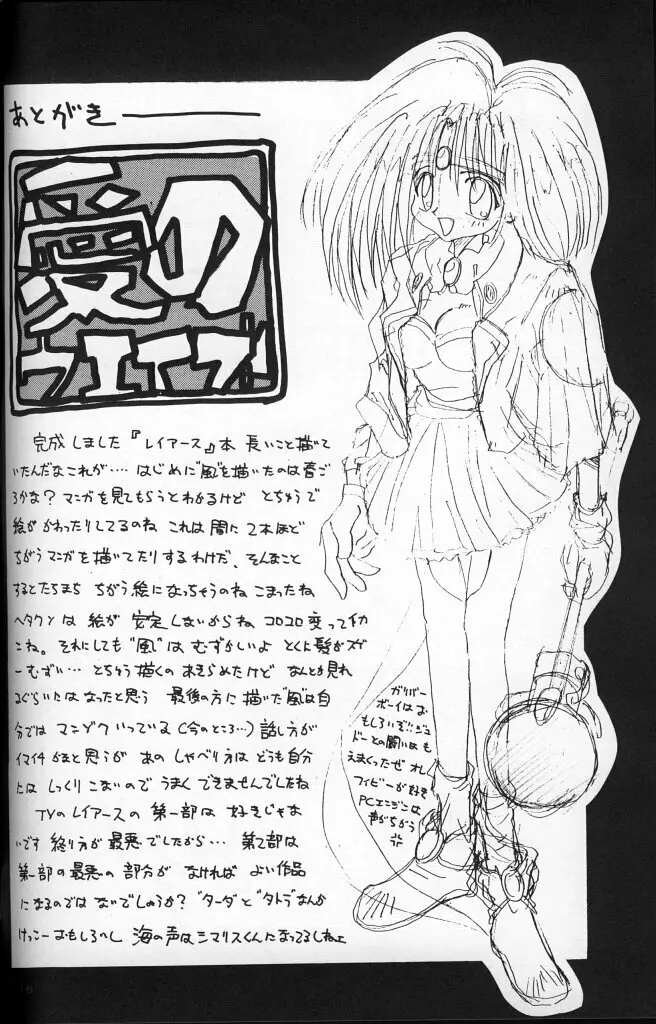 あとがき
愛の
ウエイブ
完成しました『レイアース』本 長いこと描いて
いたんだなこれが‥‥ はじめに"風"を描いたのは春ご
ろかな？マンガを見てもらうとわかるけど とちゅうで
絵が かわったりしてるのね これは間に2本ほど
ちがうマンガを描いてたりするわけだ、そんなこと
するとたちまち ちがう絵になっちゃうのね こまったね
ヘタクソは 絵が 安定しないからね コロコロ変って
こね。それにしても"風"は むずかしいよ とくに髪がスゲ
ーむずい‥‥ とちゅう描くの あきらめたけど なんとか見れ
るぐらいにはなったと思う 最後の方に描いた"風"は自
分では マンゾク いっている（今のところ…）話し方が
イマイチ かなと思うが あの しゃべり方は どうも自分
には しっくり こないので うまく できませんでしたね
TVのレイアースの 第一部は 好きじゃな
いです 終り方が最悪でしたから… 第2部は
第一部の最悪の 部分が なければ よい作品
になるのでは ないでしょうか？ "ターダ"と"タトラ"なんか
けっこーおもしろいし 海の声はシマリスくんになってるしねェ
ガリバー
ボーイは
おもしろいぞ!!ジュ
ドーとの闘いはも
えまくったぜ オレ
フィビーが好き
PCエンジンは
声がちがう